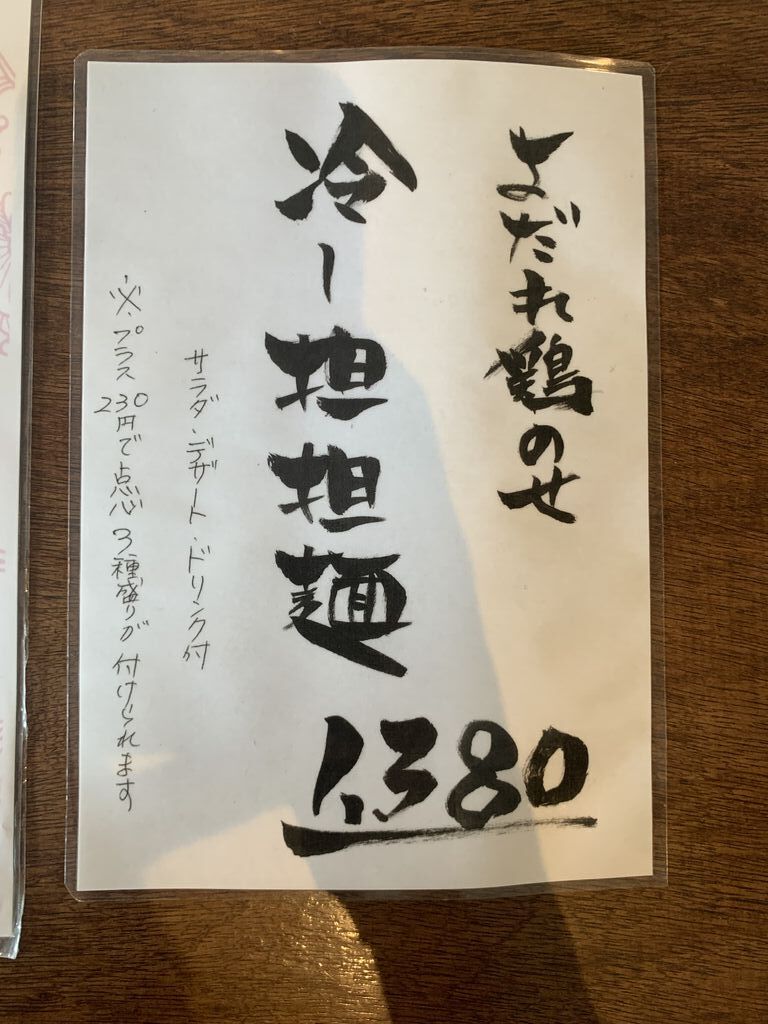 よだれ鶏のせ
冷ー担担麺
1,380
サラダ・デザート・ドリンク付
※・プラス230円で点心3種盛りが付けられます